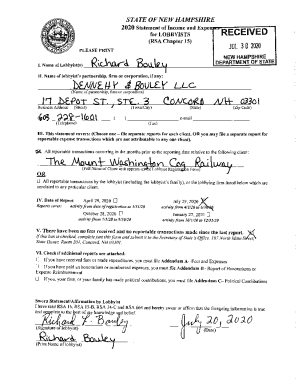 STATE OF NEW HAMPSHIRE
2020 Statement of Income and Expenses
for LOBBYISTS
(RSA Chapter 15)
RECEIVED
JUL 30 2020
NEW HAMPSHIRE
DEPARTMENT OF STATE
PLEASE PRINT
I. Name of Lobbyist(s) Richard Bouley
II. Name of lobbyist's partnership, firm or corporation, if any:
DENNEHY & BOULEY LLC
(Name of partnership, firm or corporation)
17 DEPOT ST., STE. 3 CONCORD NH 03301
Business Address (Street) (Town/City) (State) (Zip Code)
603 228-1601
(Telephone) (Fax) e-mail
III. This statement covers: (Choose one - file separate reports for each client, OR you may file a separate report for
reportable expense transactions which are not attributable to any one client).
All reportable transactions occurring in the months prior to the reporting date relative to the following client:
The Mount Washington Cog Railway
OR
All reportable transactions by the lobbyist (including the lobbyist's family), or the lobbying firm listed below which are
unrelated to any particular client.
IV. Date of Report April 29, 2020 July 29, 2020 X
Reports cover: activity from date of registration to 4/1/20 activity from 4/1/20 to 6/30/20
October 28, 2020 January 27, 2021
activity from 7/1/20 to 9/30/20 activity from 10/1/20 to 12/31/20
V. There have been no fees received and no reportable transactions made since the last report. X
If this box is checked, complete just this form and submit it to the Secretary of State's Office, 107 North Main Street,
State House, Room 204, Concord, NH 03301.
VI. Check if additional reports are attached:
If you have received fees or made expenditures, you must file Addendum A - Fees and Expenses
If you have paid an honorarium or reimbursed expenses, you must file Addendum B - Report of Honorariums or
Expense Reimbursement
If you, your firm, or your family has made political contributions, you must file Addendum C - Political Contributions
Sworn Statement/Affirmation by Lobbyist
I have read RSA 15, RSA 15-B, RSA 14-C and RSA 664 and hereby swear or affirm that the foregoing information is true
and complete to the best of my knowledge and belief.
Richard F. Bouley July 20, 2020
(Signature of lobbyist) (Date)
Richard Bouley
(Print Name of lobbyist)